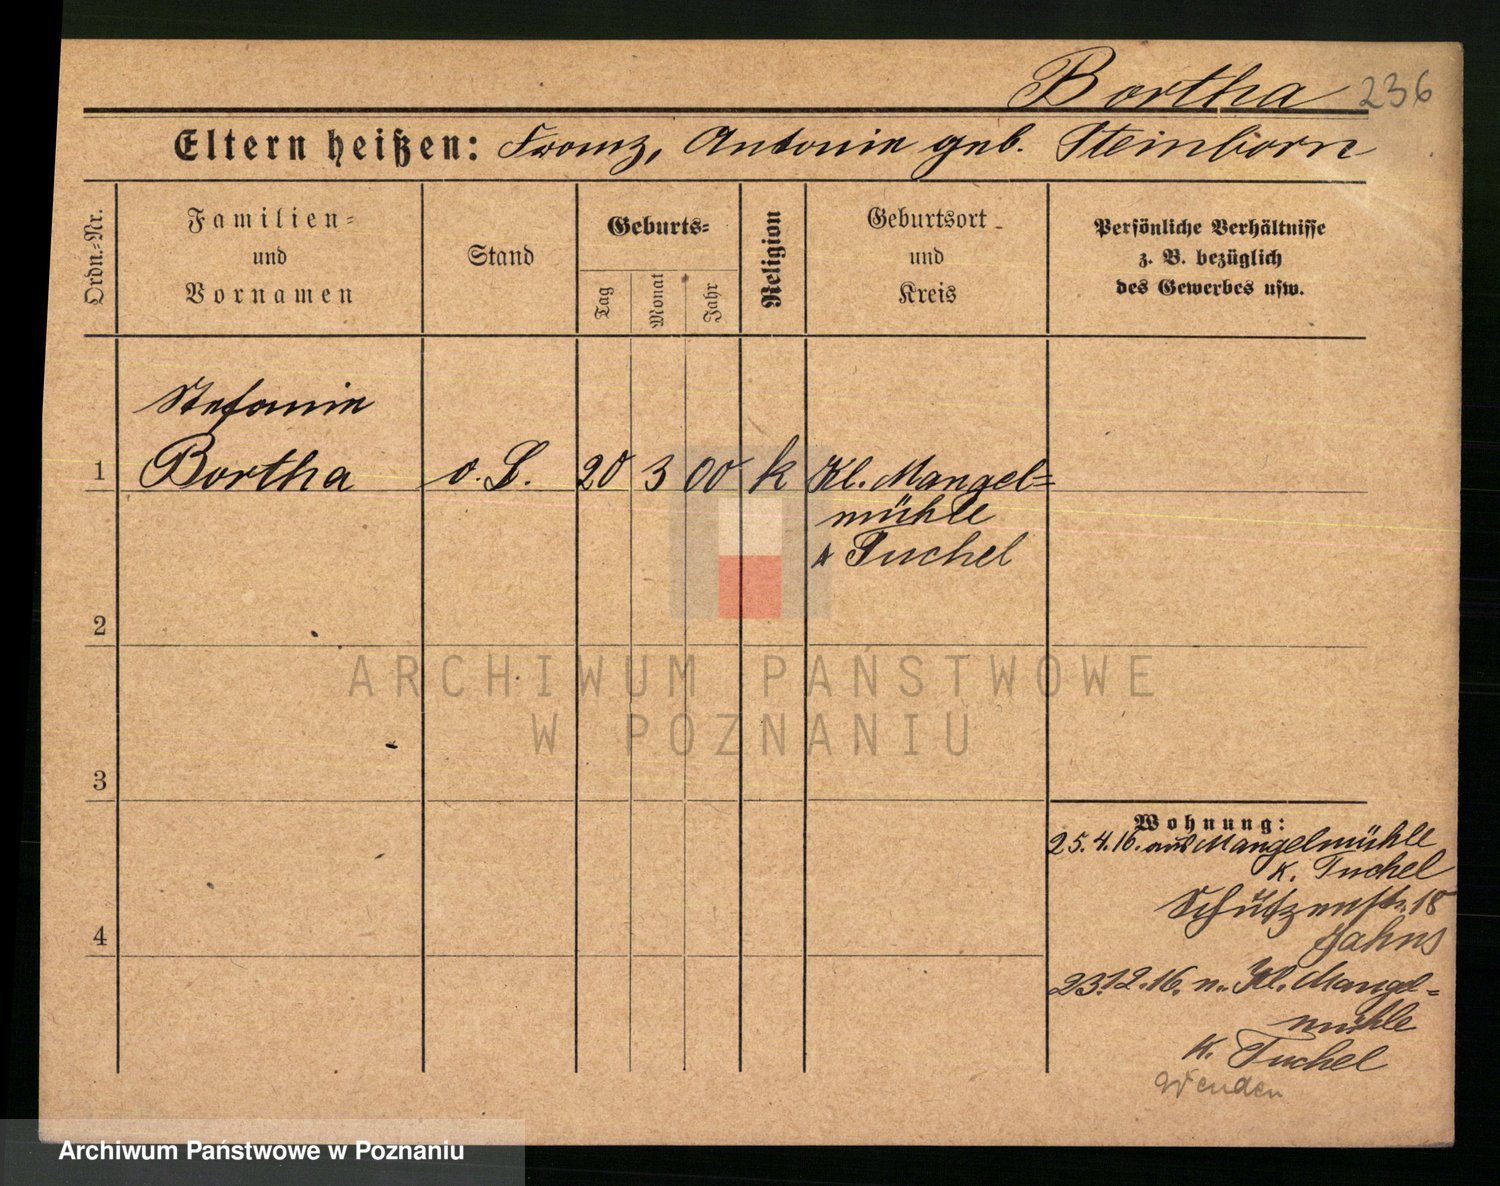 Bortha 236
Eltern heißen: Franz, Antonie geb. Steinborn
Ordn.=Nr.
Familien=
und
Vornamen
Stand
Geburts=
Tag
Monat
Jahr
Religion
Geburtsort
und
Kreis
Persönliche Verhältnisse
z. B. bezüglich
des Gewerbes usw.
Stefanie
1 Bortha o. L. 20 3 00 k Kl. Mangel=
mühle
K Tuchel
2
ARCHIWUM PAŃSTWOWE
W POZNANIU
3
Wohnung:
25.4.16. aus Mangelmühle
K. Tuchel
Schützenstr. 18
4
Jahns
23.12.16. n. Kl. Mangel=
mühle
K. Tuchel
Wenden
Archiwum Państwowe w Poznaniu